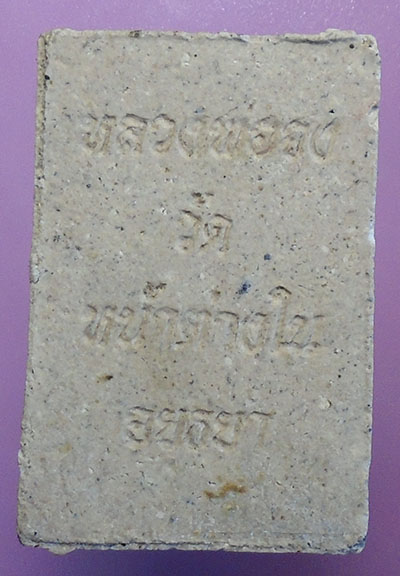 หลวงพ่อจง
วัด
หน้าต่างใน
อยุธยา